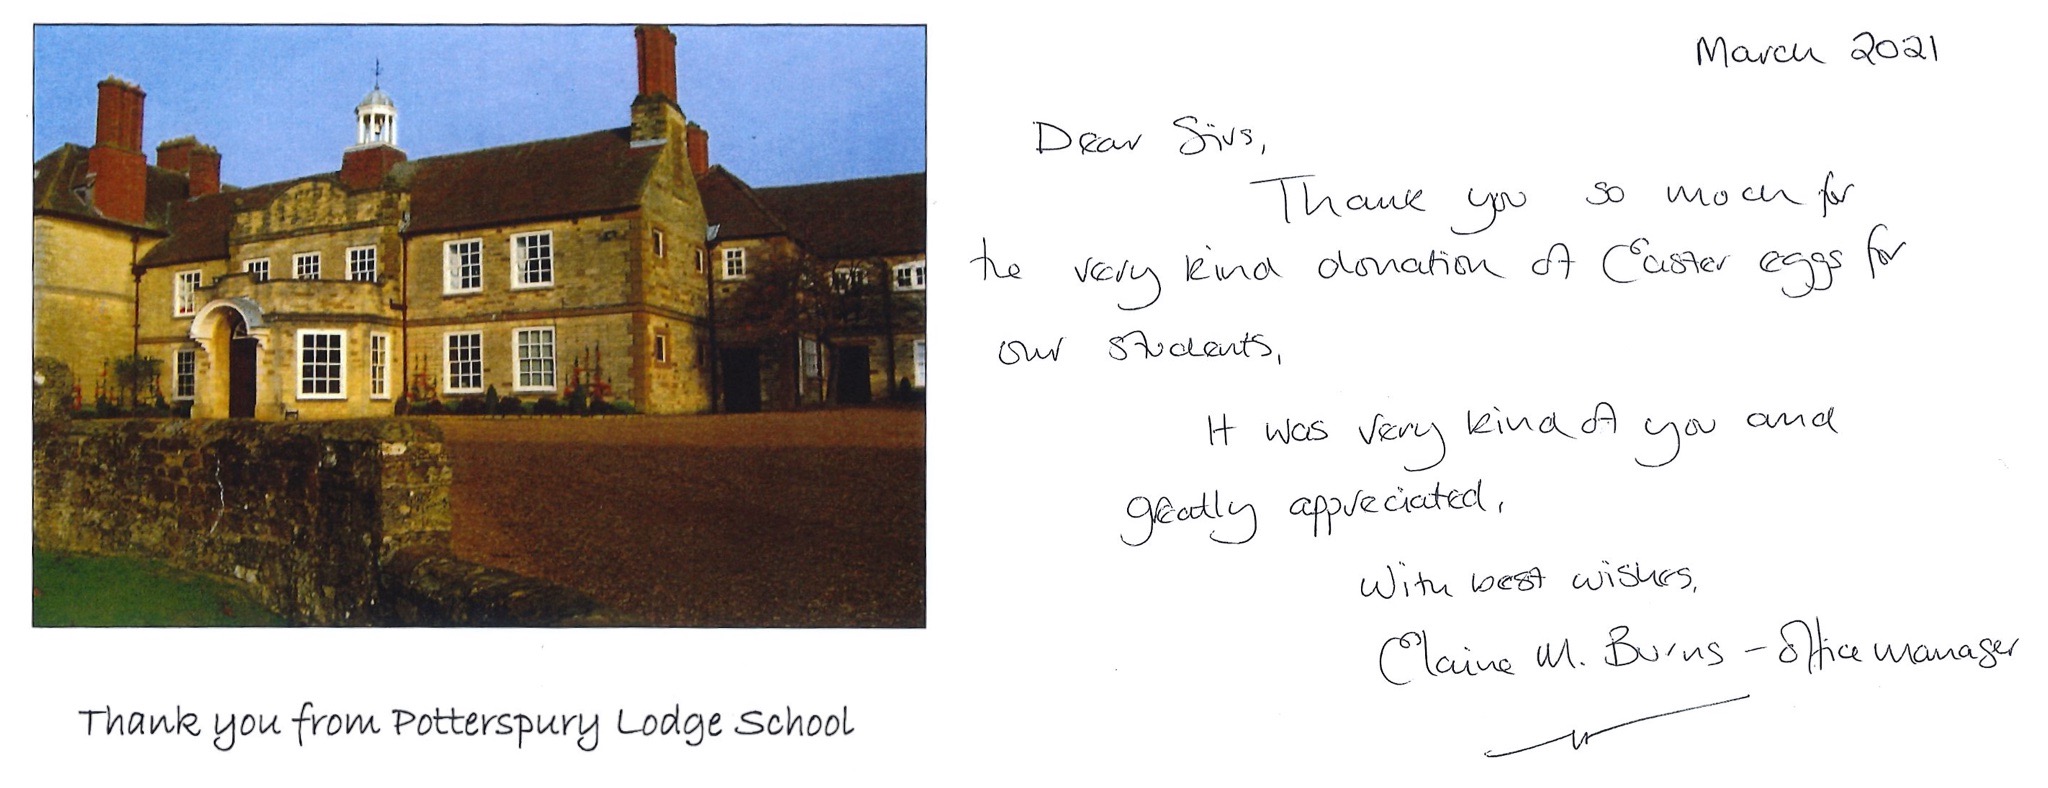 Thank you from Potterspury Lodge School
March 2021
Dear Sirs,
Thank you so much for
the very kind donation of Easter eggs for
our students,
It was very kind of you and
greatly appreciated,
With best wishes,
Elaine M. Burns – Office manager